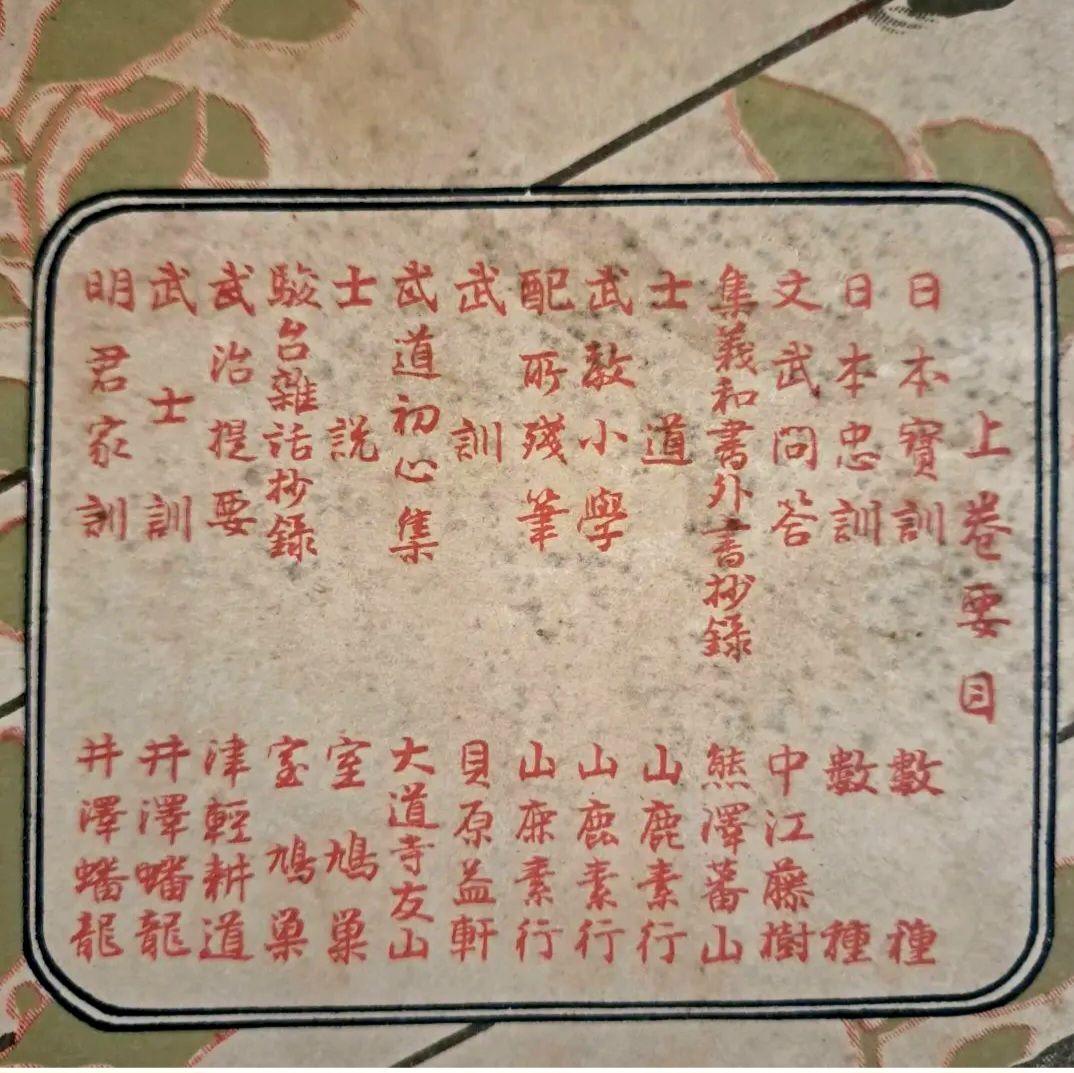 上卷要目
日本寶訓 數種
日本忠訓 數種
文武問答 中江藤樹
集義和書外書抄錄 熊澤蕃山
士道 山鹿素行
武教小學 山鹿素行
配所殘筆 山鹿素行
武訓 貝原益軒
武道初心集 大道寺友山
士說 室鳩巢
駿台雜話抄錄 室鳩巢
武治提要 津輕耕道
武士訓 井澤蟠龍
明君家訓 井澤蟠龍